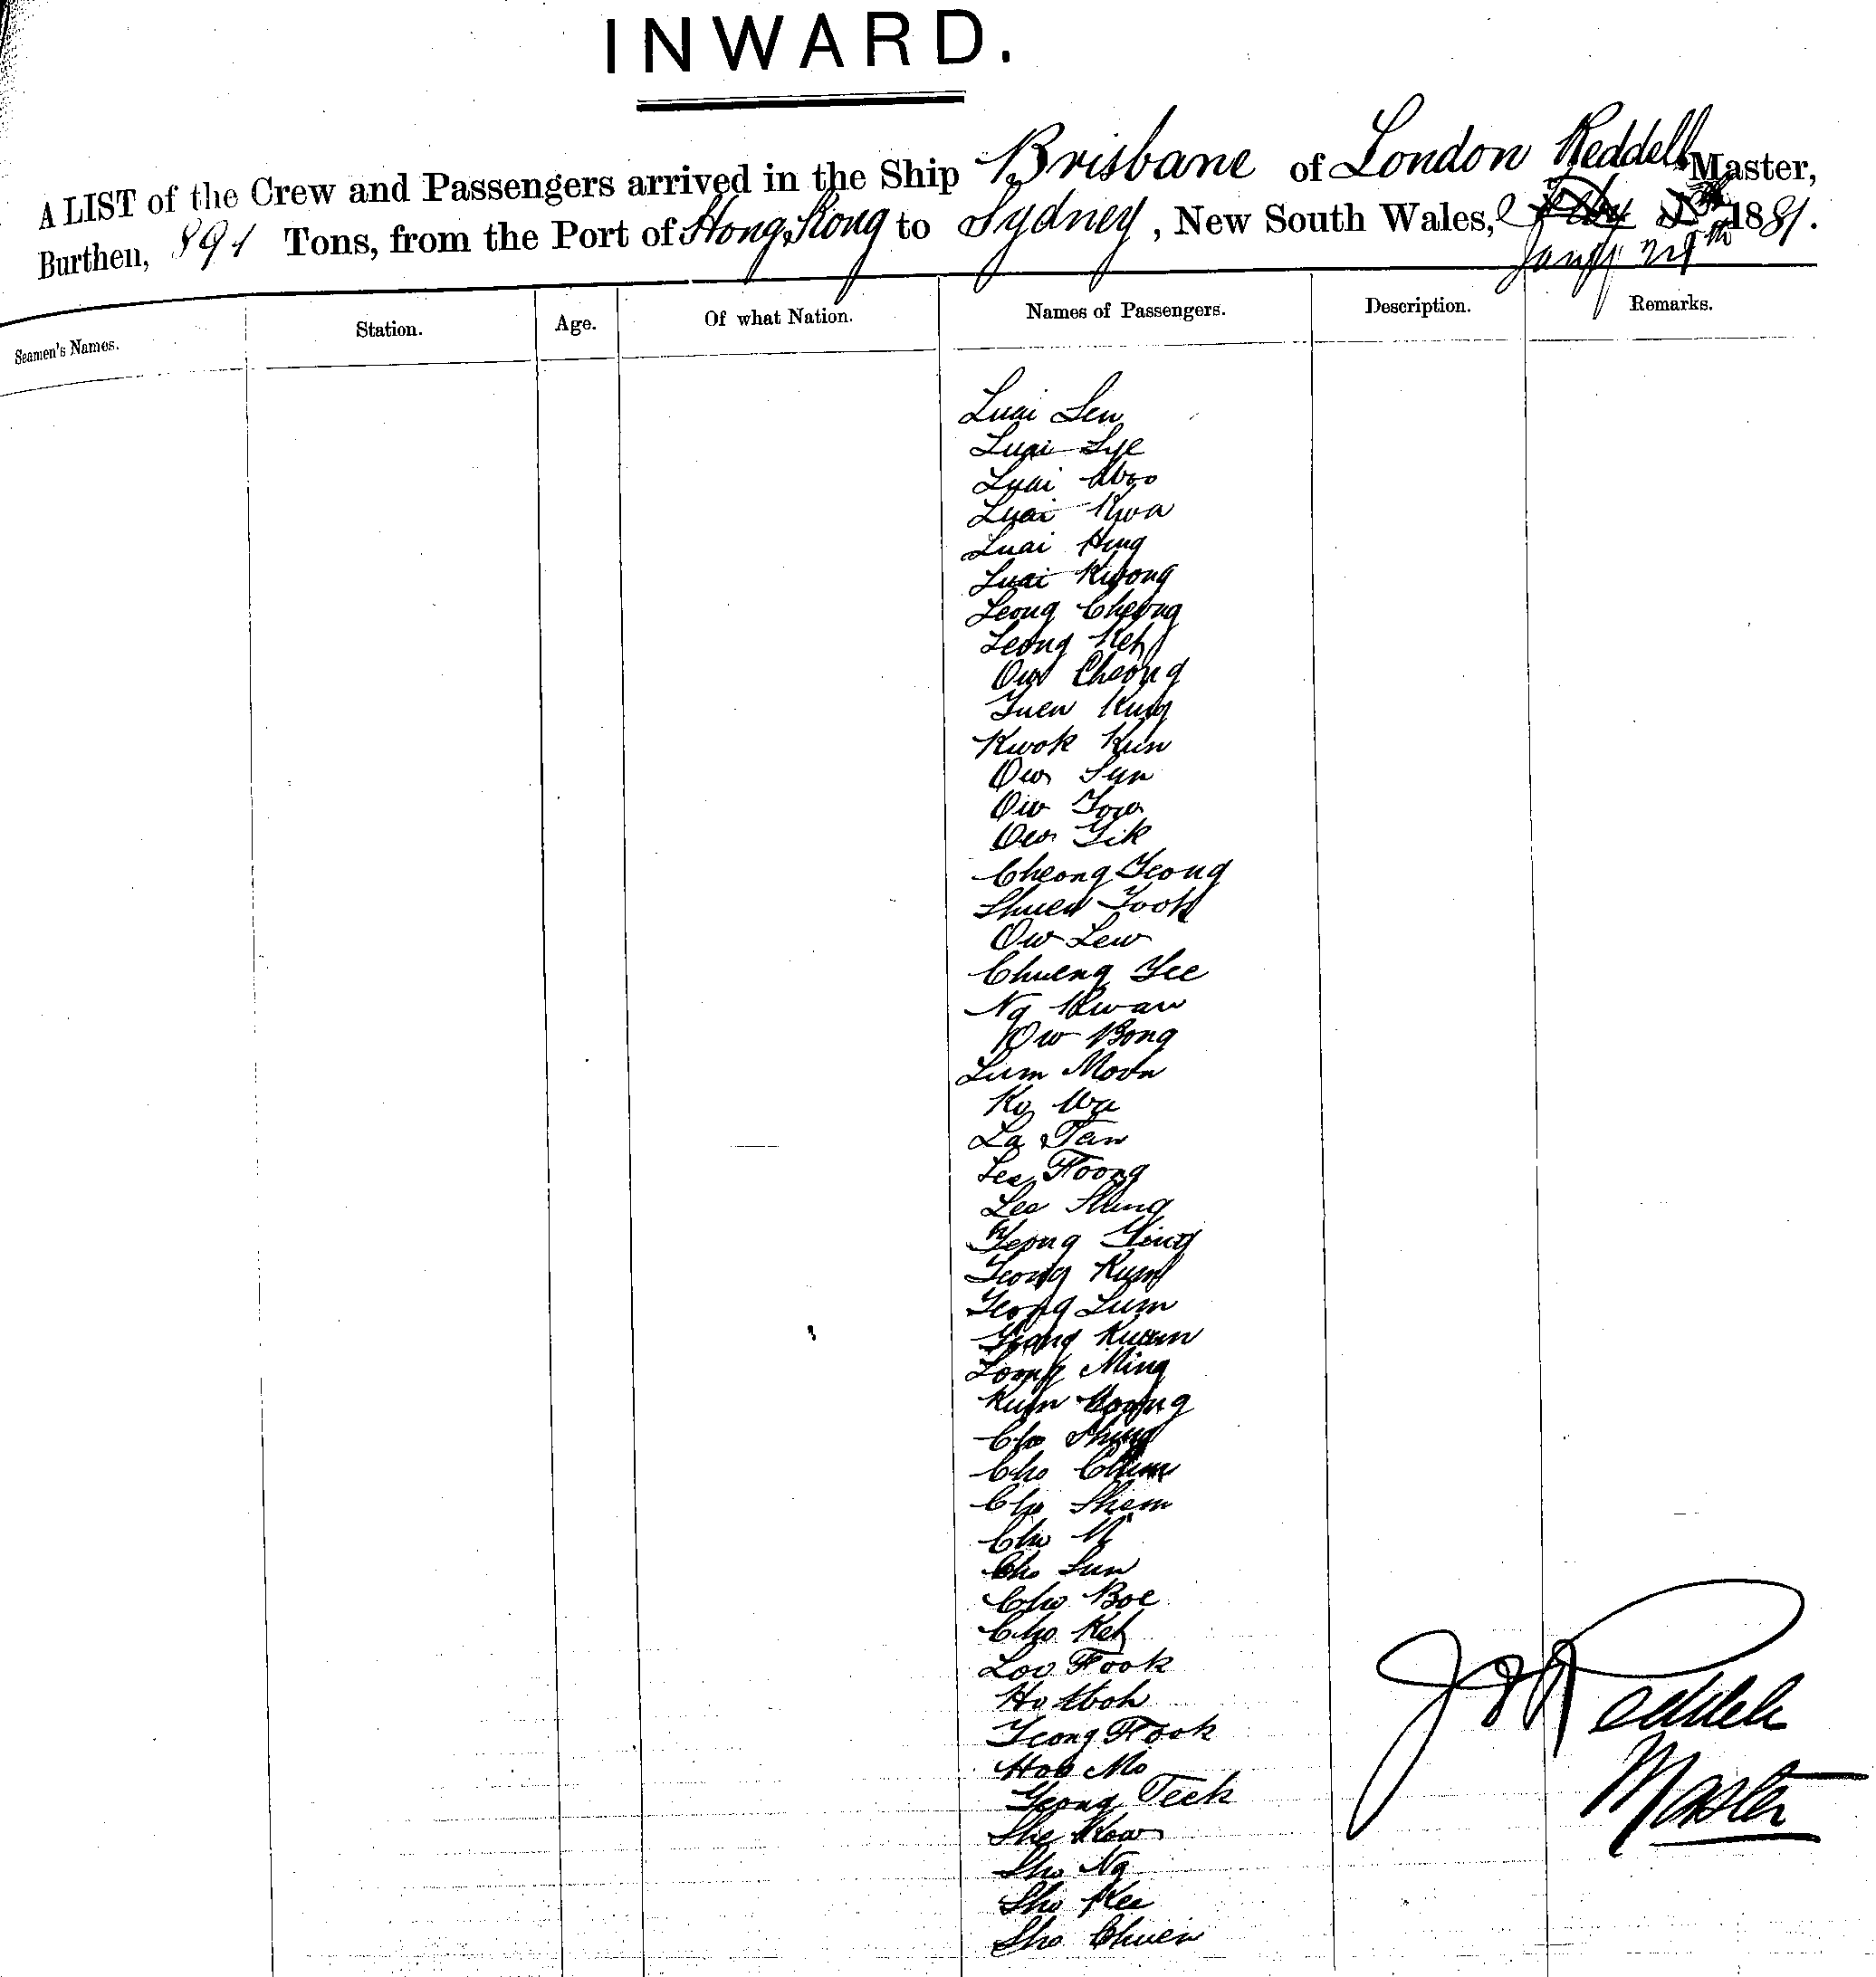 INWARD.
A LIST of the Crew and Passengers arrived in the Ship Brisbane of London Reddell Master,
Burthen, 891 Tons, from the Port of Hong Kong to Sydney, New South Wales, 1881.
Jany
Seamen's Names. Station. Age. Of what Nation. Names of Passengers. Description. Remarks.
Luai Sen
Luai Lye
Luai Woo
Luai Kwa
Luai Hing
Luai Kwong
Leong Cheong
Leong Keh
Ow Cheong
Yuen Kung
Kwok Kun
Ow Sun
Ow Yow
Ow Yik
Cheong Yeong
Shuen Yook
Ow Lew
Chueng Yee
Ng Kwan
Ow Bong
Lum Moon
Ko Wa
La Tan
Lee Foong
Lee Shing
Yeong Ying
Yeong Kum
Yeong Lum
Yeong
Loong Ming
Kum
Cho Shing
Cho Chim
Cho Shem
Cho
Cho Sun
Cho Boe
Cho Keh
Low Fook
Ho Woh
Yeong Fook
Hoo Mo
Yeong Teek
She Kow
Sho Ng
Sho Kee
Sho Chuen
Reddell
Master